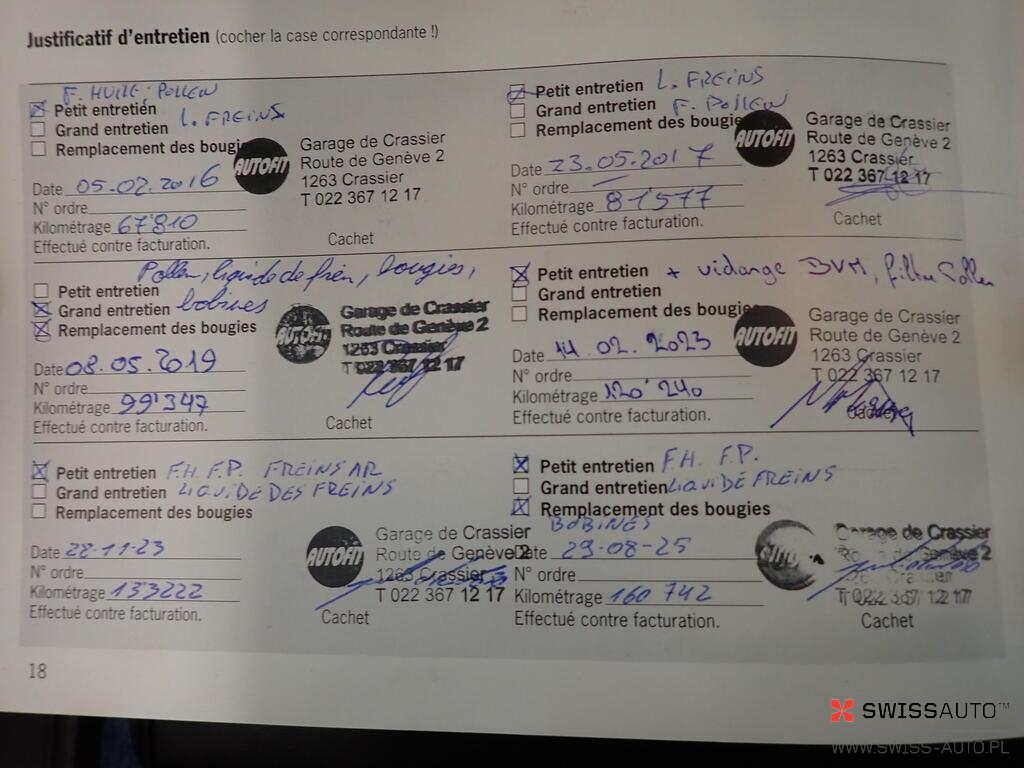 Justificatif d'entretien (cocher la case correspondante !)
F. HUILE, POLLEN
Petit entretien
Grand entretien L. FREINS
Remplacement des bougies
AUTOFIT
Garage de Crassier
Route de Genève 2
1263 Crassier
T 022 367 12 17
Date 05.02.2016
N° ordre
Kilométrage 67'810
Effectué contre facturation.
Cachet
Petit entretien L. FREINS
Grand entretien F. POLLEN
Remplacement des bougie
AUTOFIT
Garage de Crassier
Route de Genève 2
1263 Crassier
T 022 367 12 17
Date 23.05.2017
N° ordre
Kilométrage 81'577
Effectué contre facturation.
Cachet
Pollen, liquide de frein, bougies,
Petit entretien
Grand entretien bobines
Remplacement des bougies
AUTOFIT
Garage de Crassier
Route de Genève 2
1263 Crassier
T 022 367 12 17
Date 08.05.2019
N° ordre
Kilométrage 99'347
Effectué contre facturation.
Cachet
Petit entretien + vidange BVM, filtre Pollen
Grand entretien
Remplacement des bougie
AUTOFIT
Garage de Crassier
Route de Genève 2
1263 Crassier
T 022 367 12 17
Date 14.02.2023
N° ordre
Kilométrage 120'240
Effectué contre facturation.
Cachet
Petit entretien F.H. F.P. FREINS AR
Grand entretien LIQUIDE DES FREINS
Remplacement des bougies
AUTOFIT
Garage de Crassier
Route de Genève 2
1263 Crassier
T 022 367 12 17
Date 28-11-23
N° ordre
Kilométrage 133222
Effectué contre facturation.
Cachet
Petit entretien F.H. F.P.
Grand entretien LIQUIDE FREINS
Remplacement des bougies
BOBINES
Garage de Crassier
Genève 2
T 022 367 12 17
Date 29-08-25
N° ordre
Kilométrage 160 742
Effectué contre facturation.
Cachet
18
SWISSAUTO™
WWW.SWISS-AUTO.PL